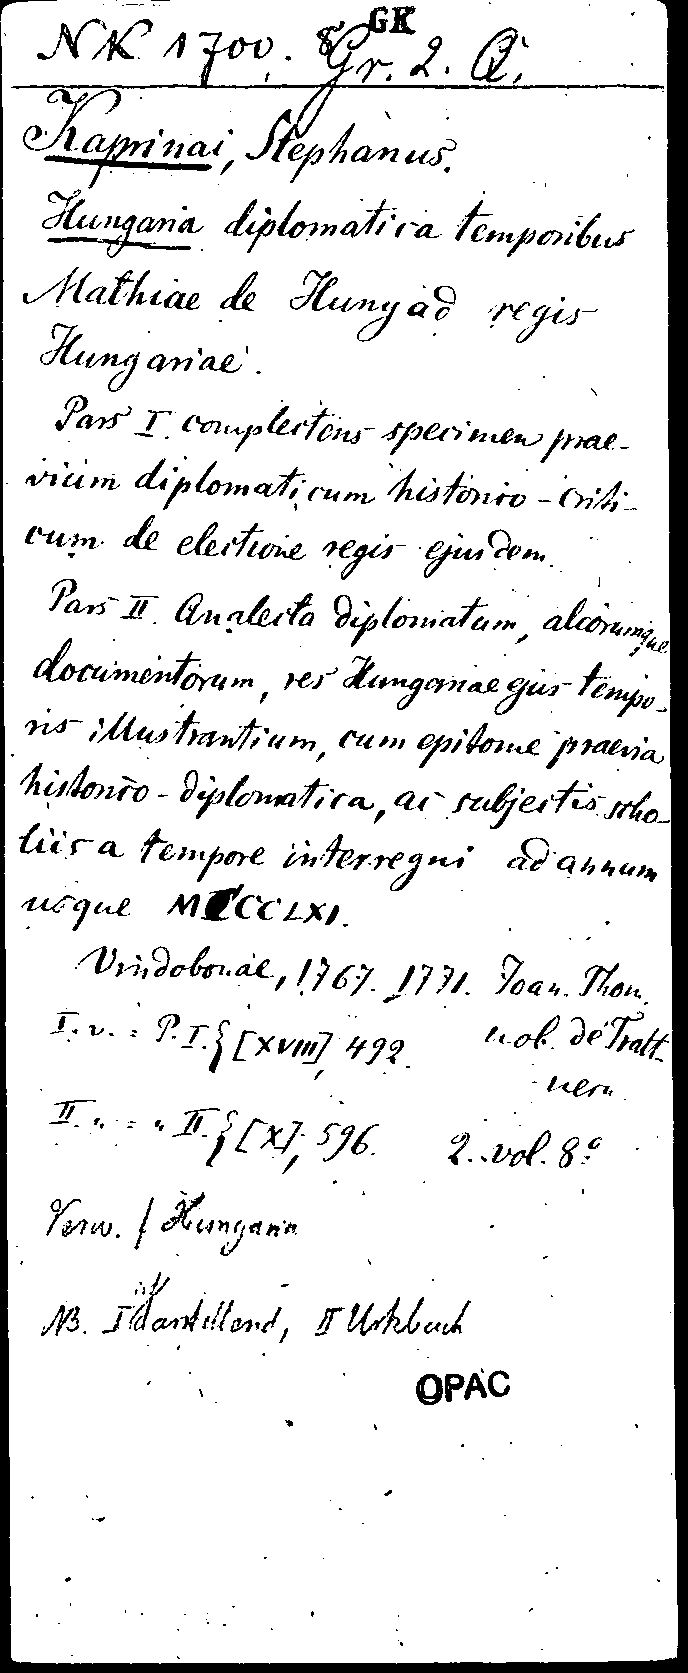 GK
NK 1700. 8 Gr. 2. Q.
Kaprinai, Stephanus.
Hungaria diplomatica temporibus
Mathiae de Hunyad regis
Hungariae.
Pars I. complectens specimen prae-
vium diplomaticum historico-criti-
cum de electione regis ejusdem.
Pars II. Analecta diplomatum, aliorumque
documentorum, res Hungariae ejus tempo-
ris illustrantium, cum epitome praevia
historico-diplomatica, ac subjectis scho-
liis a tempore interregni ad annum
usque MCCCLXI.
Vindobonae, 1767. 1771. Joan. Thom.
nob. de Tratt-
nern
I. v. = P. I. { [XVIII], 492.
II. " = " II. { [X], 596. 2. vol. 8º
Verw. / Hungaria
NB. I ist darstellend, II Urkbuch
OPAC